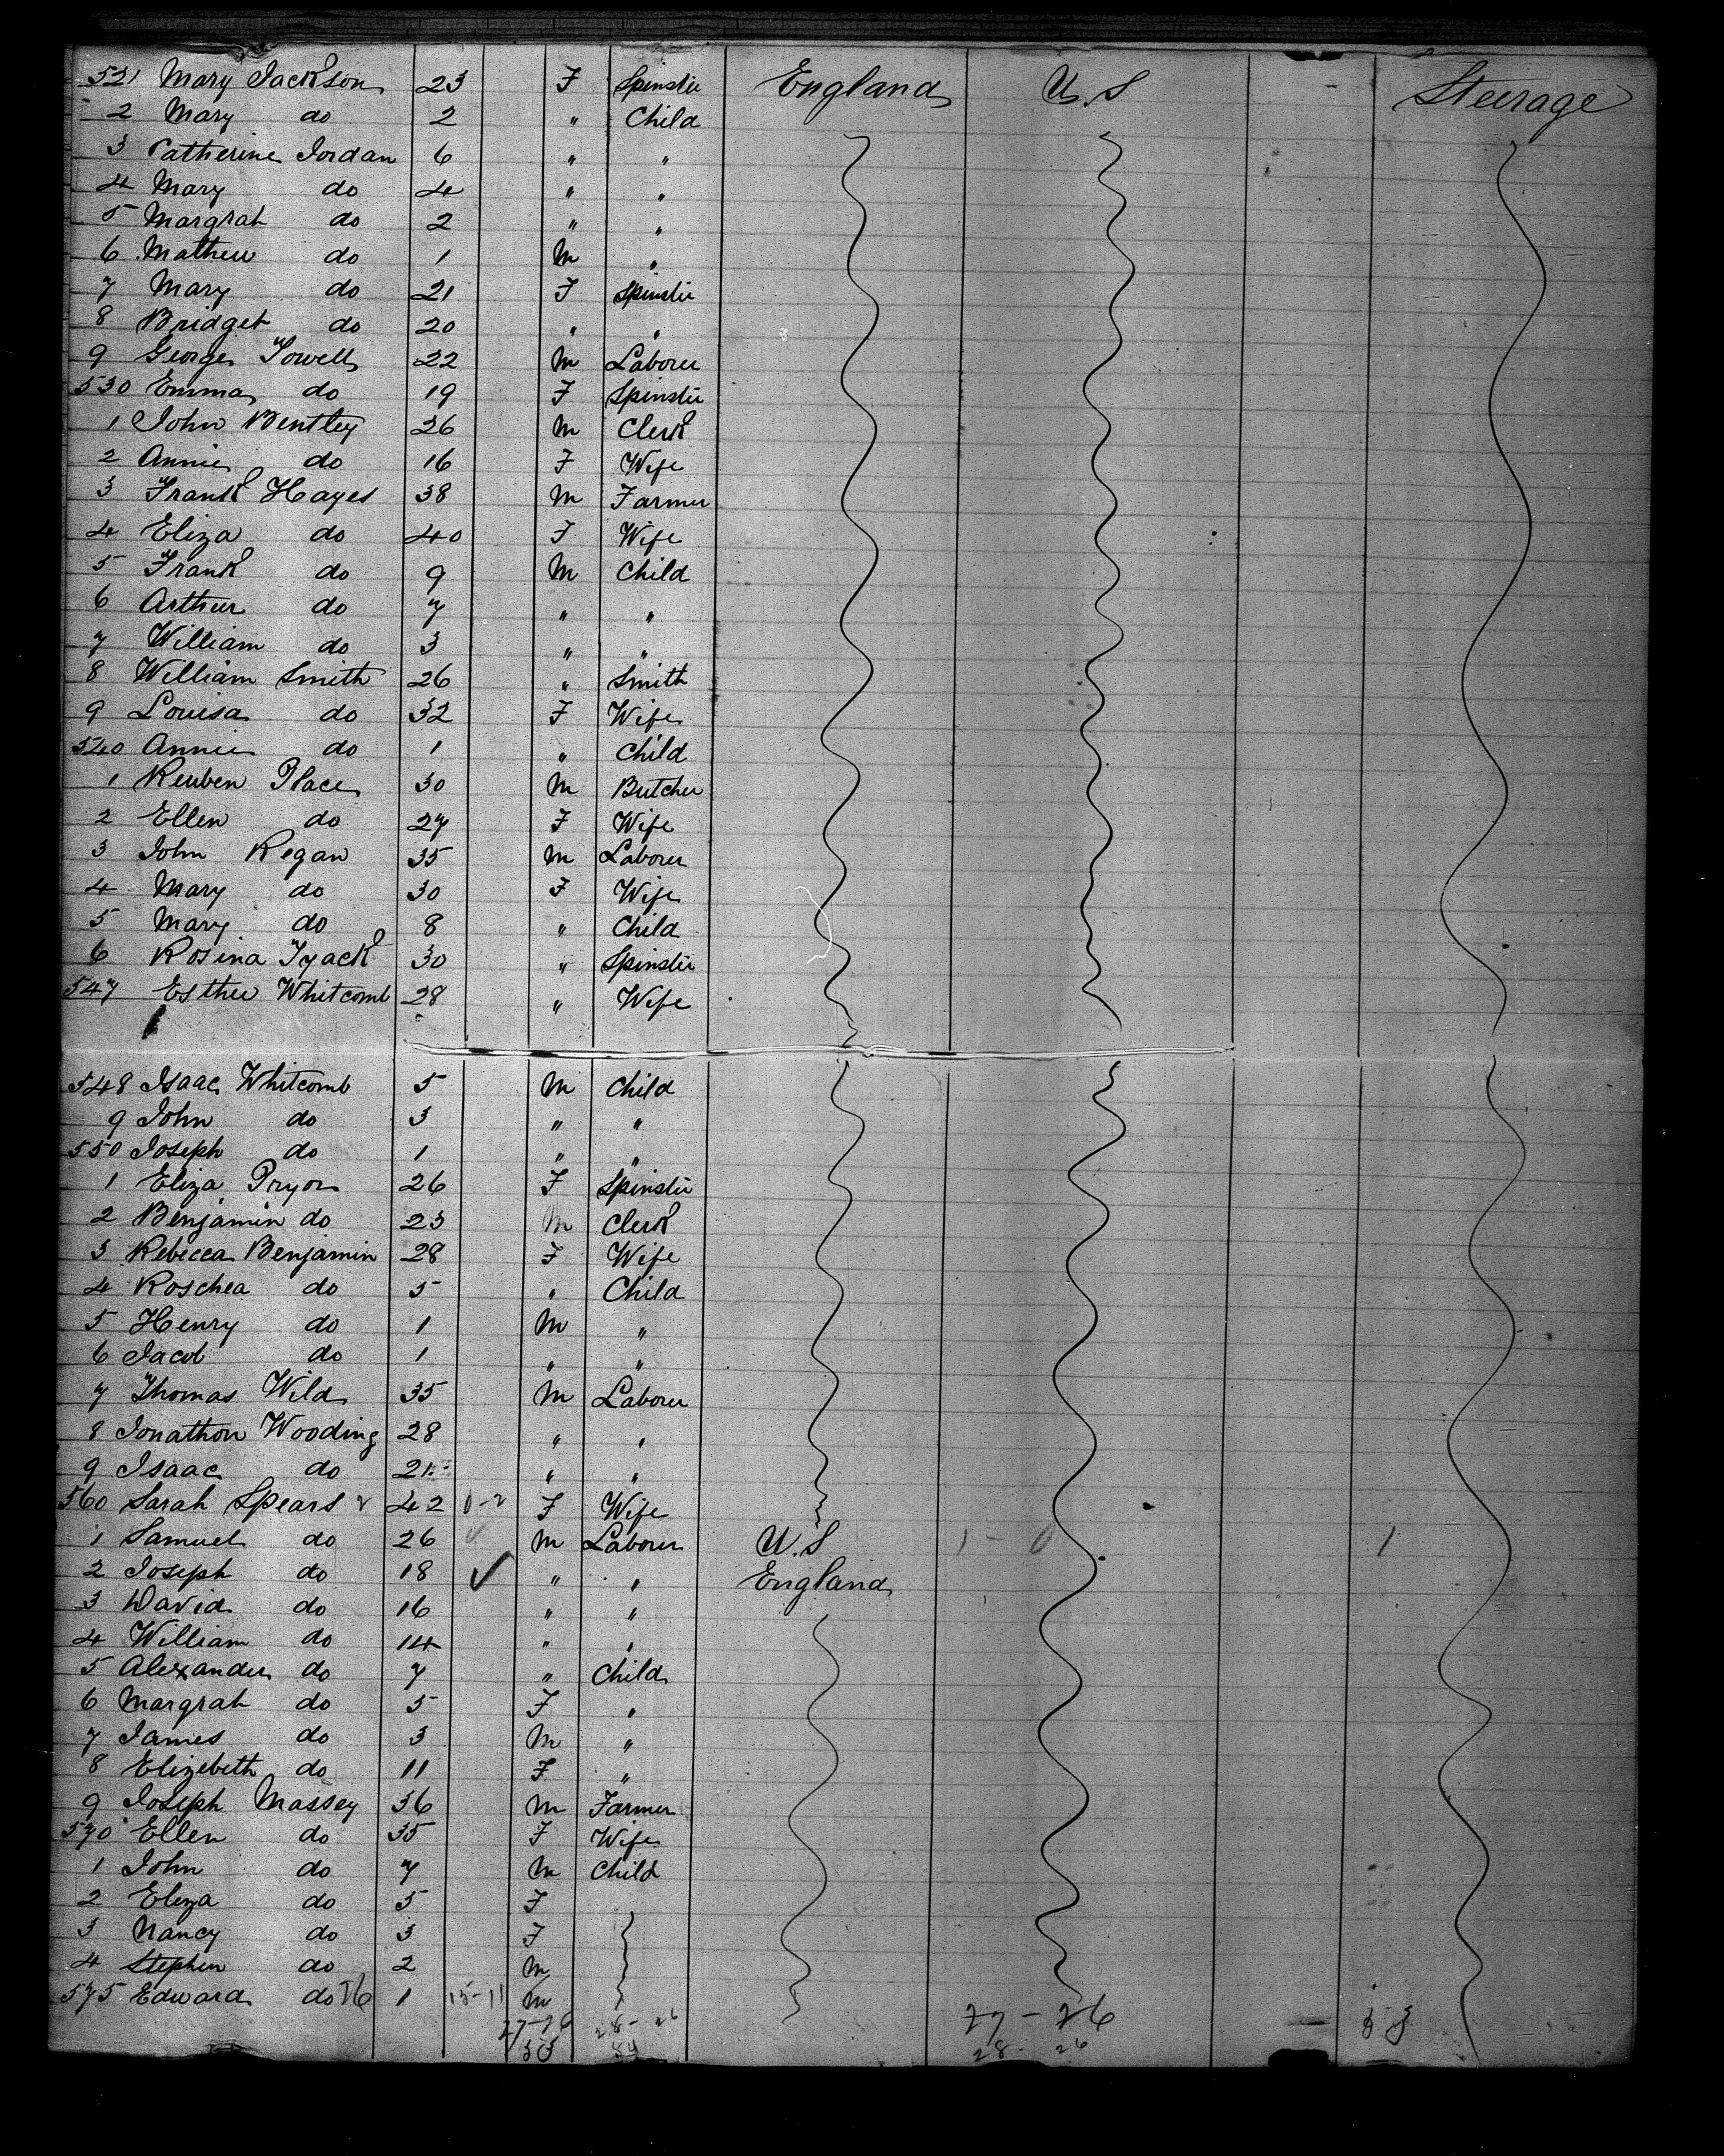 521 Mary Jackson 23 F Spinster England U.S Steerage
2 Mary do 2 " Child
3 Catherine Jordan 6 " "
4 Mary do 4 " "
5 Margrat do 2 " "
6 Mathew do 1 M "
7 Mary do 21 F Spinster
8 Bridget do 20 " "
9 George Towell 22 M Laborer
530 Emma do 19 F Spinster
1 John Bentley 26 M Clerk
2 Annie do 16 F Wife
3 Frank Hayes 38 M Farmer
4 Eliza do 40 F Wife
5 Frank do 9 M Child
6 Arthur do 7 " "
7 William do 3 " "
8 William Smith 26 " Smith
9 Louisa do 32 F Wife
540 Annie do 1 " Child
1 Reuben Place 30 M Butcher
2 Ellen do 27 F Wife
3 John Regan 35 M Laborer
4 Mary do 30 F Wife
5 Mary do 8 " Child
6 Rosina Tyack 30 " Spinster
547 Esther Whitcomb 28 " Wife
548 Isaac Whitcomb 5 M Child
9 John do 3 " "
550 Joseph do 1 " "
1 Eliza Pryor 26 F Spinster
2 Benjamin do 23 M Clerk
3 Rebecca Benjamin 28 F Wife
4 Roschea do 5 " Child
5 Henry do 1 M "
6 Jacob do 1 " "
7 Thomas Wild 35 M Laborer
8 Jonathon Wooding 28 " "
9 Isaac do 21 " "
560 Sarah Spears 42 0-2 F Wife
1 Samuel do 26 M Laborer U.S 1-0 1
2 Joseph do 18 ✓ " " England
3 David do 16 " "
4 William do 14 " "
5 Alexander do 7 " Child
6 Margrat do 5 F "
7 James do 3 M "
8 Elizebeth do 11 F "
9 Joseph Massey 36 M Farmer
570 Ellen do 35 F Wife
1 John do 7 M Child
2 Eliza do 5 F
3 Nancy do 3 F
4 Stephen do 2 M
575 Edward do 1 15-11 M
27-26 28-26 27-26 53
53 28-26